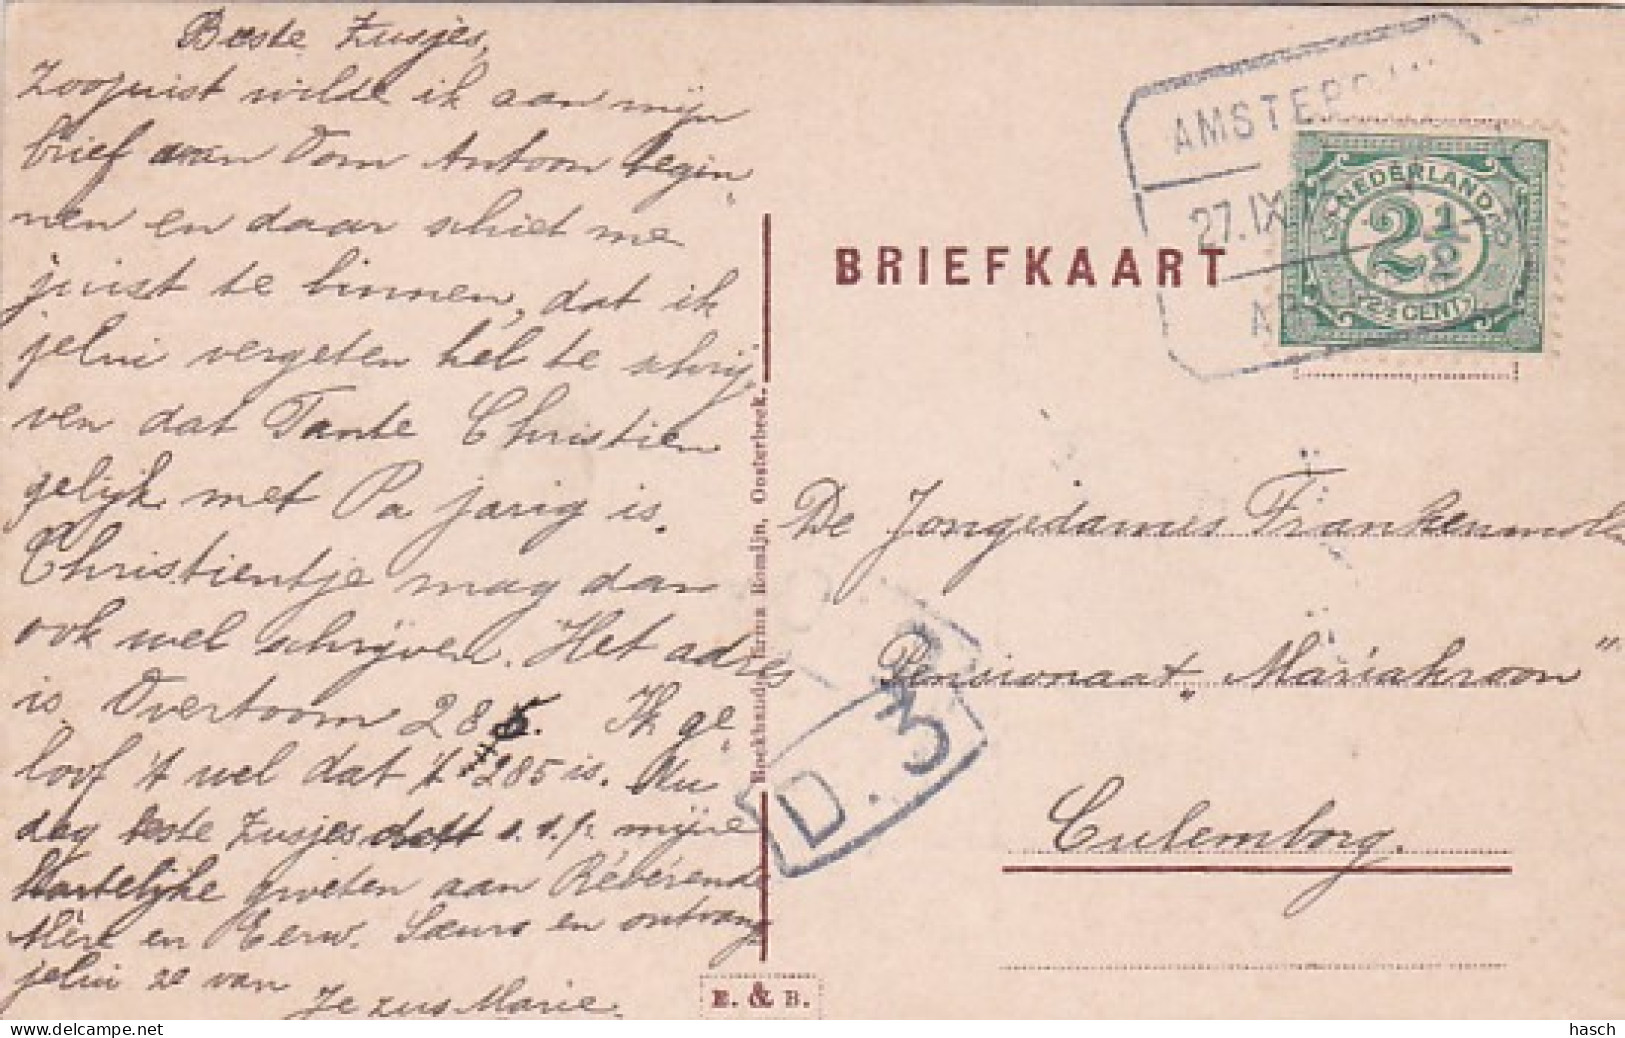 Beste Zusjes,
Zoojuist wilde ik aan mijn
brief aan Oom Antoon begin„
nen en daar schiet me
juist te binnen, dat ik
jelui vergeten heb te schrij„
ven dat Tante Christien
gelijk met Pa jarig is.
Christientje mag dan
ook wel schrijven. Het adres
is Overtoom 285. Ik ge„
loof 't wel dat 't 285 is. Nu
dag beste Zusjes s.v.p. mijne
hartelijke groeten aan Réverende
Mère en Eerw. Sœurs en ontvang
jelui ze van
Je zus Marie.
BRIEFKAART
AMSTERDAM
27.IX
NEDERLAND
2½
2½ CENT
Boekhandel Firma Romijn, Oosterbeek.
De Jongedames Frankenmole
Pensionaat „Mariakroon"
Culemborg.
D. 3
E. & B.
hasch
delcampe.net